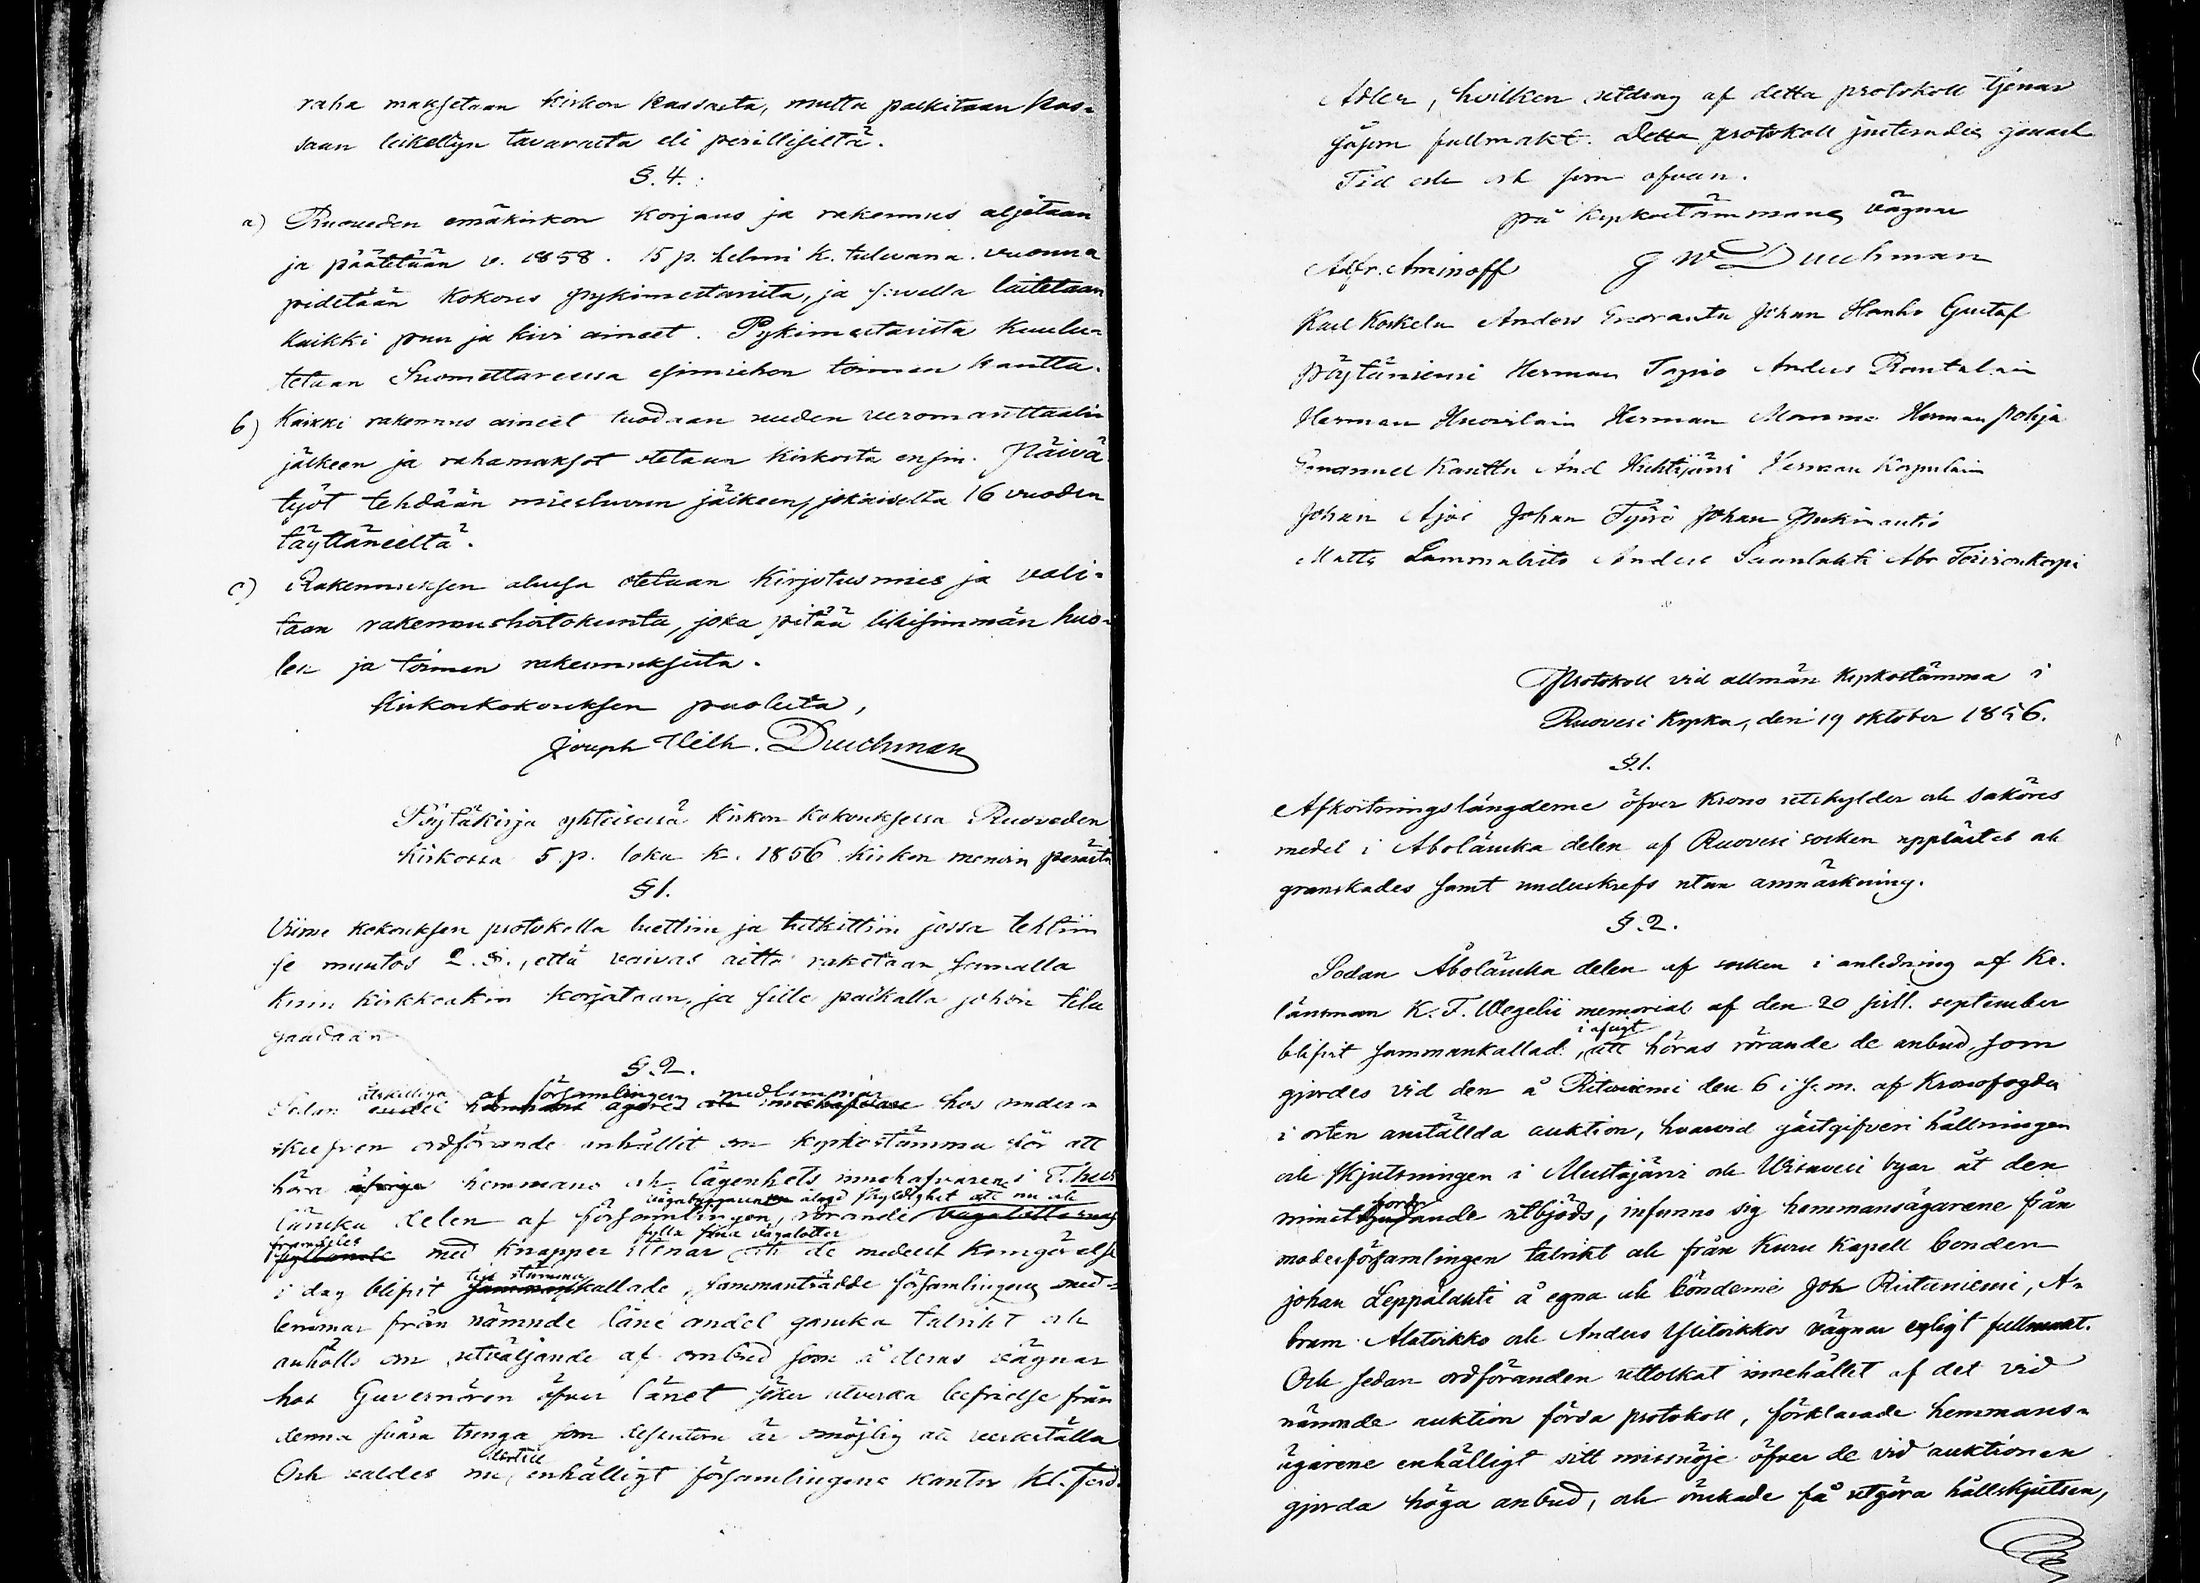 raha maksetaan kirkon kassasta, mutta palkitaan kas-
saan leikellyn tavarasta eli perillisiltä.
§. 4.
a) Ruoveden emäkirkon korjaus ja rakennus aljetaan
ja päätetään v. 1858. 15 p. helmi k. tulevana vuonna
pidetään kokous pykimestarista, ja s. vuella laitetaan
kaikki puu ja kivi aineet. Pykimestarista kuulu-
tetaan Suomettaressa esimiehen toimen kautta.
b) Kaikki rakennus aineet tuodaan uuden veromanttaalin
jälkeen ja rahamaksot otetaan kirkosta ensin. Päivä
työt tehdään miesluvun jälkeen, jokaiselta 16 vuoden
täyttäneeltä.
c) Rakennuksen alussa otetaan kirjotusmies ja vali-
taan rakennushoitokunta, joka pitää likisimmän huo-
len ja toimen rakennuksesta.
Kirkonkokouksen puolesta,
Joseph Wilh. Durchman
Pöytäkirja yhteisessä kirkon kokouksessa Ruoveden
kirkossa 5 p. loka k. 1856 kirkon menoin perästä
§ 1.
Viime kokouksen protokolla luettiin ja tutkittiin jossa tehtiin
se muutos 2. §., että vaivas aitta raketaan samalla
kuin kirkkoakin korjataan, ja sille paikalla johon tila
saadaan
§. 2.
Sedan åtskillige af församlingens medlemmar hos under-
skrefven ordförande anhållit om kyrkostämma för att
höra öfriga hemmans och lägenhets innehafvarena i T.hus
vägabyggnaden ålagd skyldighet att nu och
länska delen af församlingen, rörande vägalotternas
framdeles fylla sina vägalotter
fyllande med knapper stenar och de medelst kungörelse
i dag blifvit till stämma kallade, sammanträdde församlingens med-
lemmar från nämnde läns andel ganska talrikt och
anhölls om utväljande af ombud som å deras vägnar
hos Guvernören öfver länet söker utverka befrielse från
denna svåra tunga som dessutom är omöjlig att verkställa
Och valdes nu dertill enhälligt församlingens kantor Kl. Ferd.
Adler, hvilken utdrag af detta protokoll tjenar
såsom fullmakt. Detta protokoll justerades genast
Tid och ort som ofvan.
på kyrkostämmans vägnar
Adfr. Aminoff J W Durchman
Karl Koskela Anders Enoranta Johan Hanho Gustaf
Pöytäniemi Herman Tapio Anders Rantalain
Herman Huovilain Herman Mommo Herman Pohja
Emanuel Kauttu And Huhtijärvi Herman Karpulain
Johan Ajos Johan Työrö Johan
Matts Lammalisto Anders Saunlahti Abr
Protokoll vid allmän kyrkostämma i
Ruovesi kyrka, den 19 oktober 1856.
§. 1.
Afkortningslängderne öfver krono utskylder och saköres
medel i Abolänska delen af Ruovesi socken upplästes och
granskades samt underskrefs utan anmärkning.
§. 2.
Sedan Åbolänska delen af socken i anledning af Kr.
länsman K. F. Wegelii memorial af den 20 sistl. september
blifvit sammankallad i afsigt att höras rörande de anbud, som
gjordes vid den å Ritoniemi den 6 i s. m. af Kronofogden
i orten anställda auktion, hvarvid gästgifveri hållningen
och skjutsningen i Mustajärvi och Wisuvesi byar åt den
minstfordrande utbjöds, infunno sig hemmansägarene från
moderförsamlingen talrikt och från Kuru kapell bonden
Johan Leppälahti å egna och bönderne Joh Riutaniemi, A-
bram Alatvikko och Anders Ylitvikkos vägnar enligt fullmakt.
Och sedan ordföranden uttolkat innehållet af det vid
nämnde auktion förda protokoll, förklarade hemmans-
ägarene enhälligt sitt missnöje öfver de vid auktionen
gjorda höga anbud, och önskade få utgöra hållskjutsen,